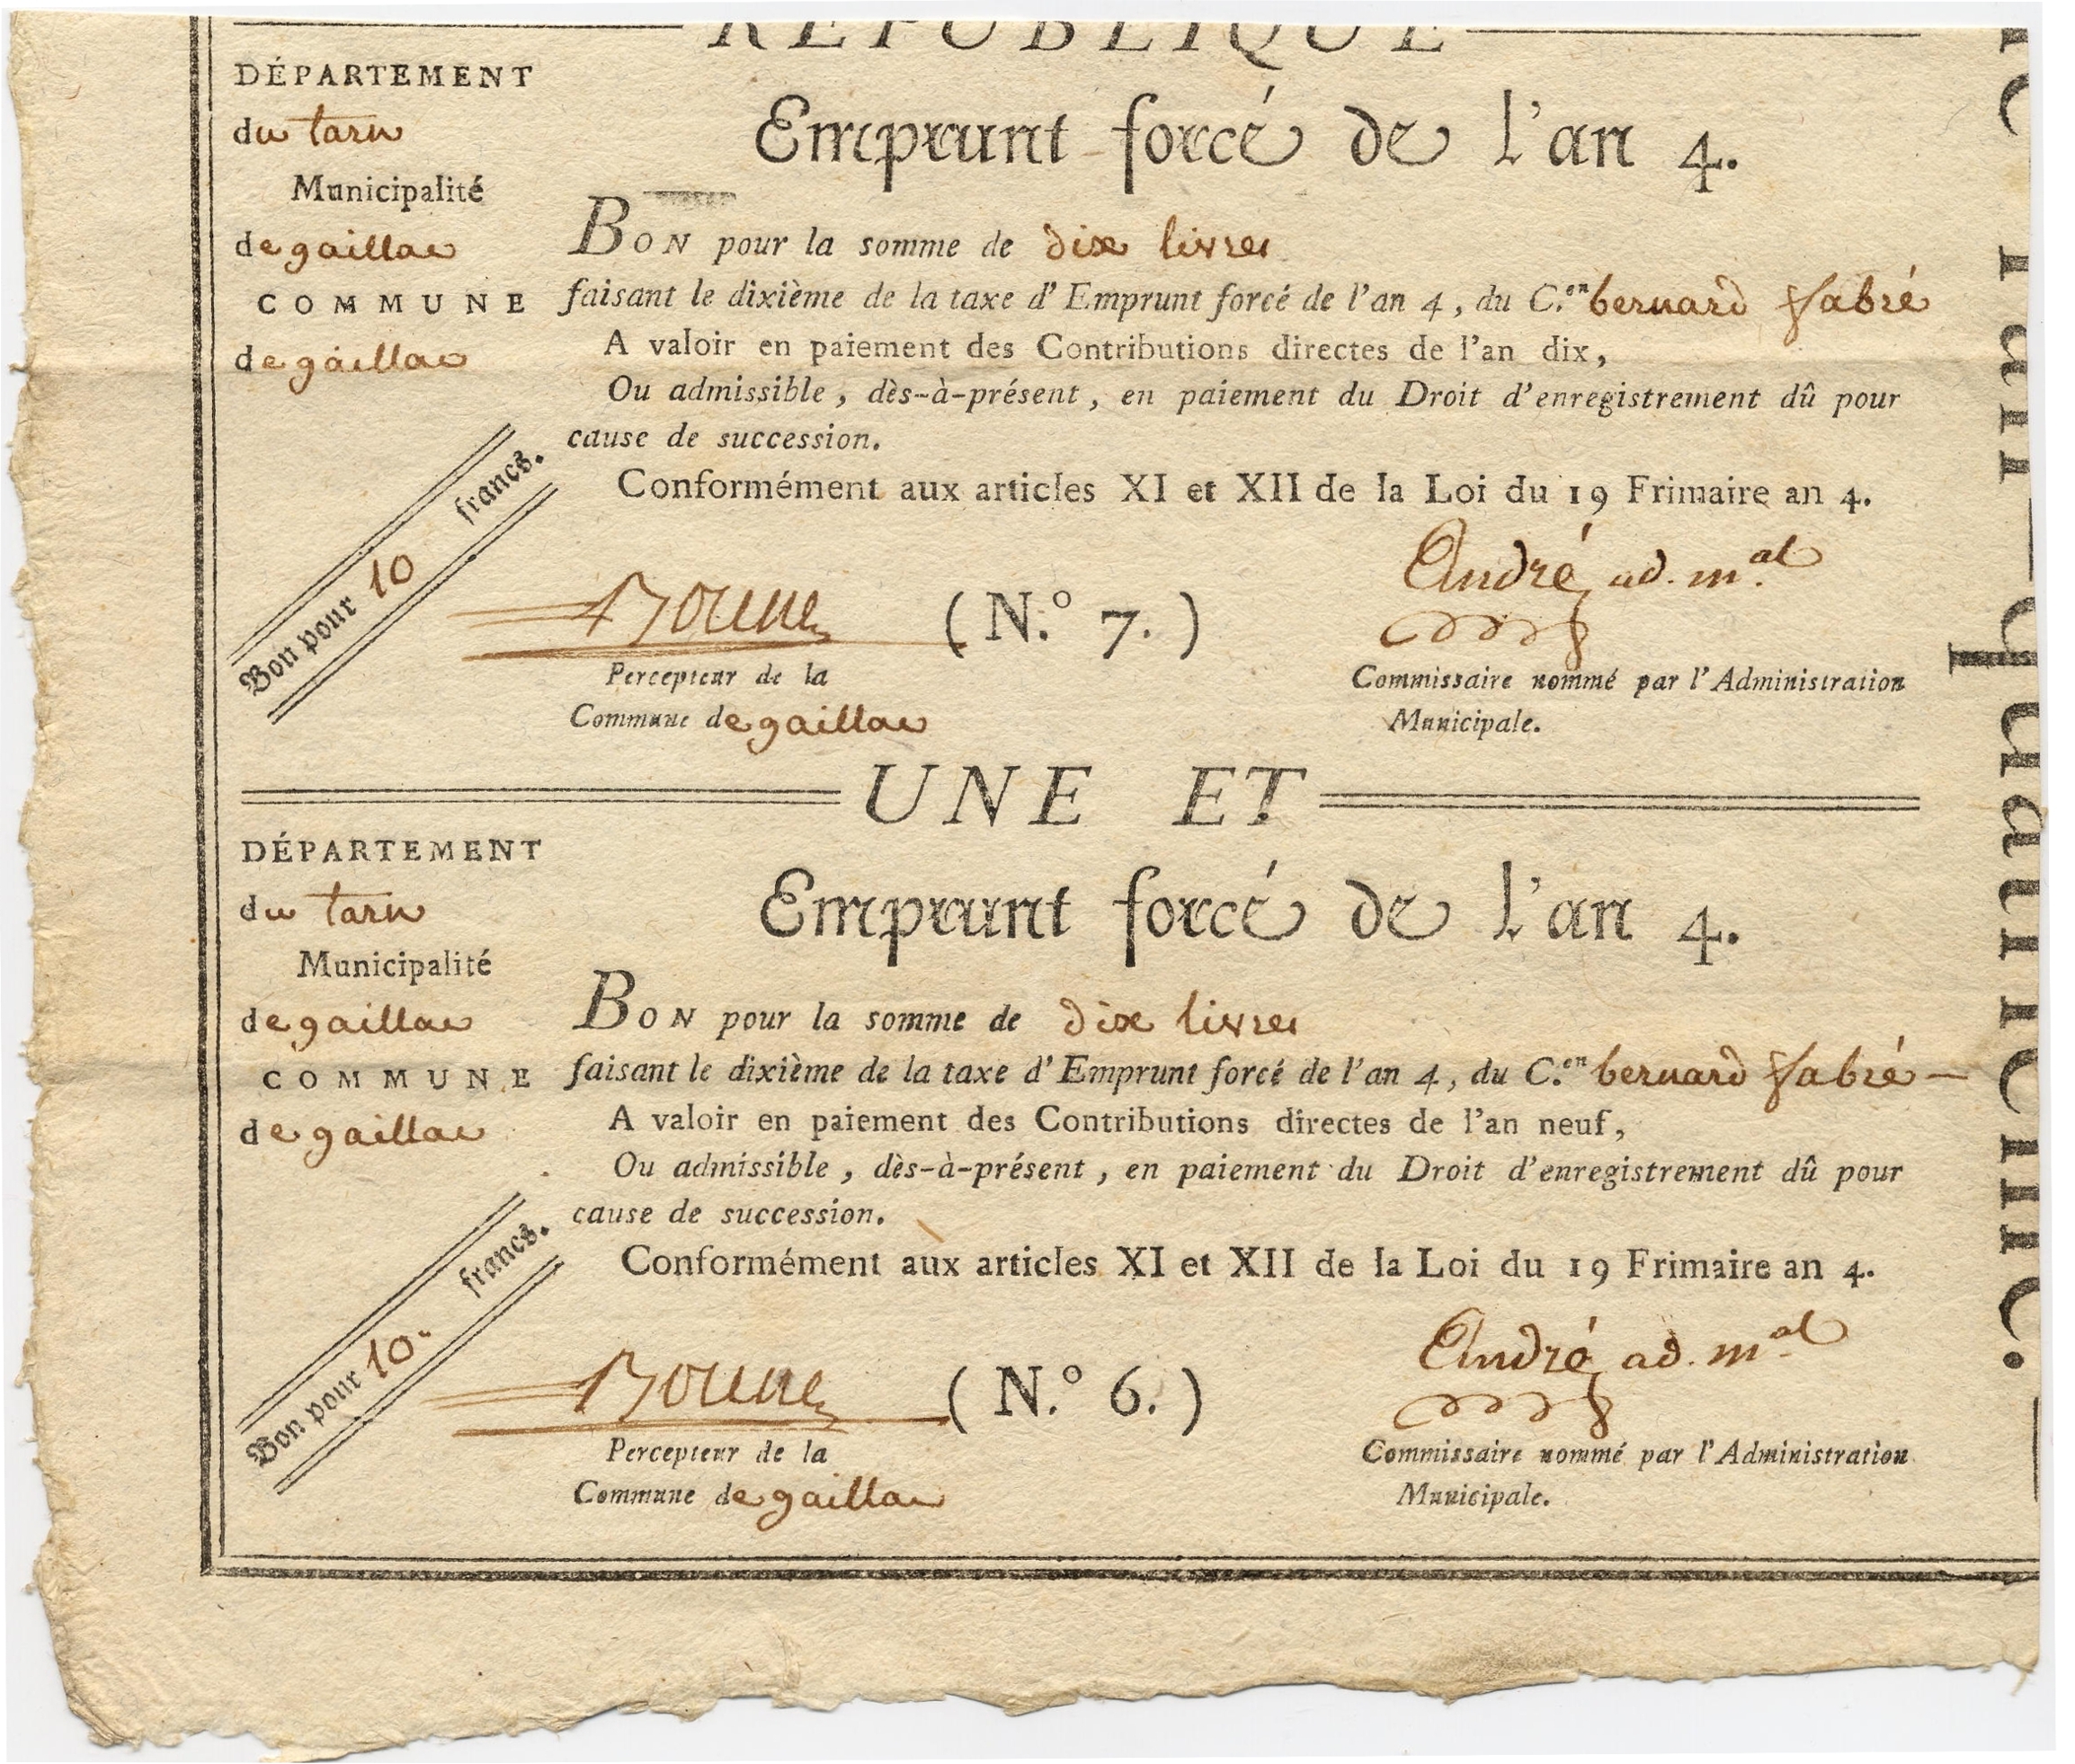 RÉPUBLIQUE
DÉPARTEMENT
du tarn
Municipalité
de gaillac
COMMUNE
de gaillac
Emprunt forcé de l'an 4.
BON pour la somme de dix livres
faisant le dixième de la taxe d'Emprunt forcé de l'an 4, du C.en bernard fabré
A valoir en paiement des Contributions directes de l'an dix,
Ou admissible, dès-à-présent, en paiement du Droit d'enregistrement dû pour
cause de succession.
Conformément aux articles XI et XII de la Loi du 19 Frimaire an 4.
Bon pour 10 francs.
(N.° 7.)
André ad. m.al
Percepteur de la
Commune de gaillac
Commissaire nommé par l'Administration
Municipale.
UNE ET
DÉPARTEMENT
du tarn
Municipalité
de gaillac
COMMUNE
de gaillac
Emprunt forcé de l'an 4.
BON pour la somme de dix livres
faisant le dixième de la taxe d'Emprunt forcé de l'an 4, du C.en bernard fabré —
A valoir en paiement des Contributions directes de l'an neuf,
Ou admissible, dès-à-présent, en paiement du Droit d'enregistrement dû pour
cause de succession.
Conformément aux articles XI et XII de la Loi du 19 Frimaire an 4.
Bon pour 10 francs.
(N.° 6.)
André ad. m.al
Percepteur de la
Commune de gaillac
Commissaire nommé par l'Administration
Municipale.
l'an quatrième.